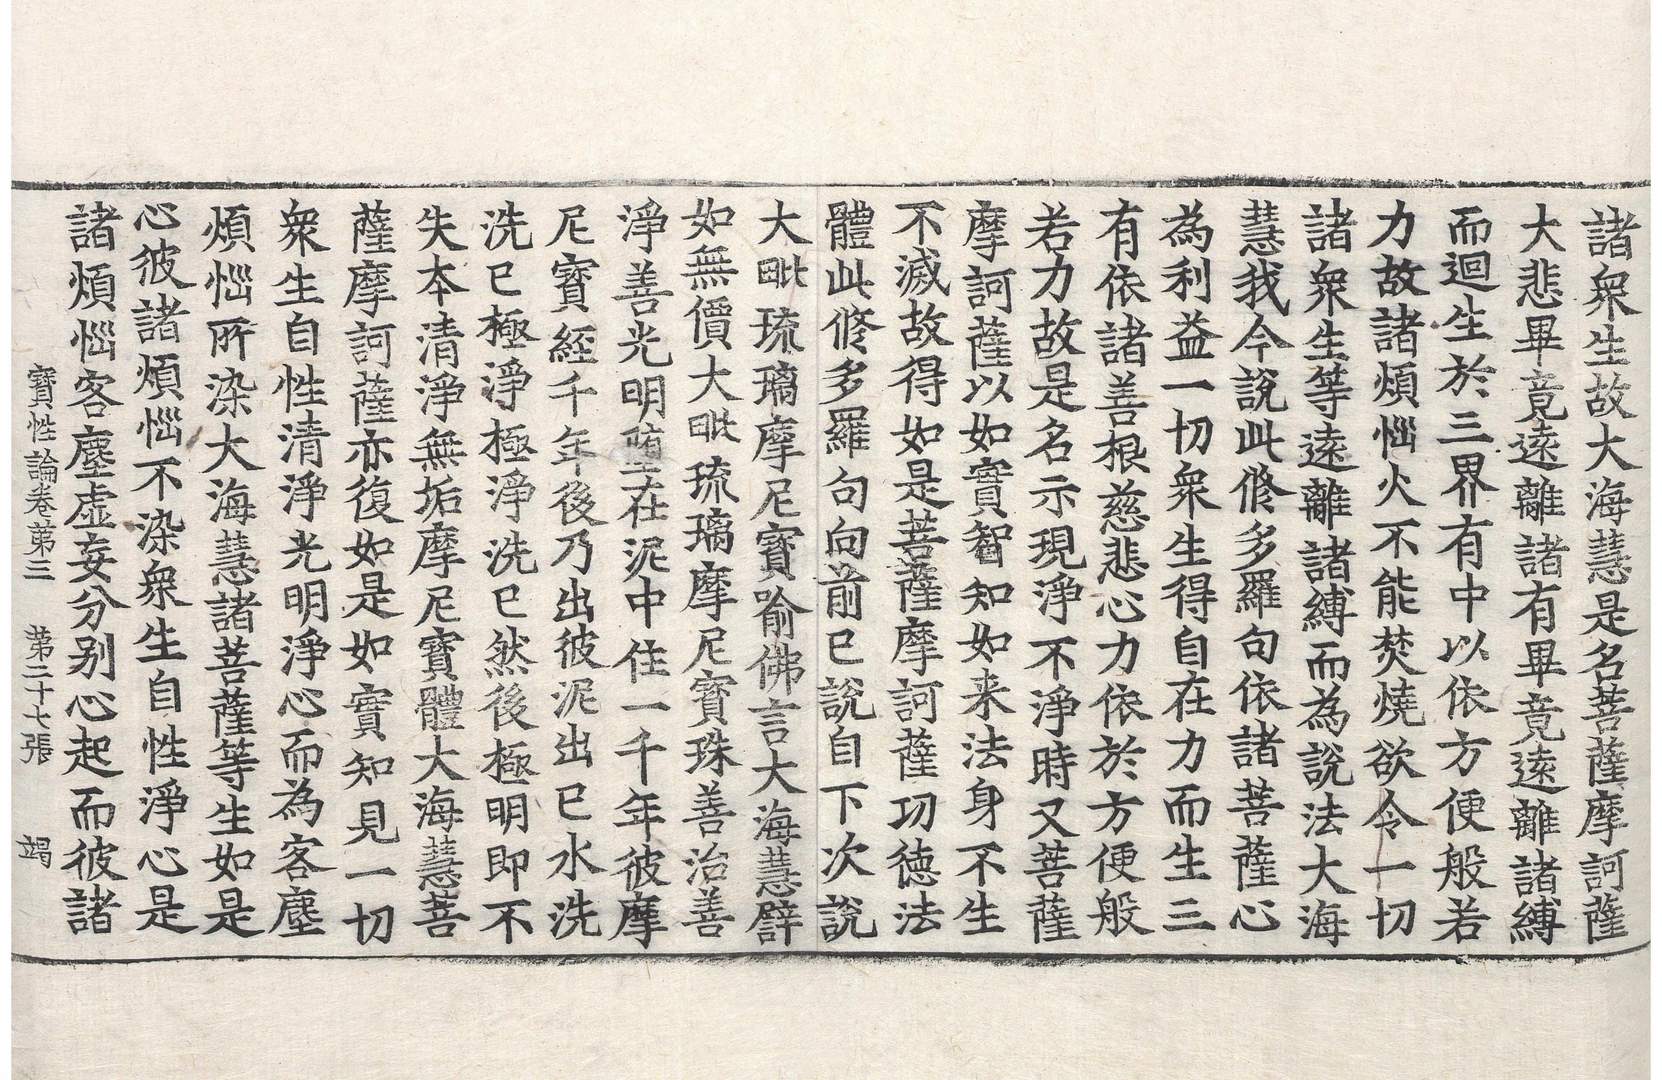 諸衆生故大海慧是名菩薩摩訶薩
大悲畢竟遠離諸有畢竟遠離諸縛
而迴生於三界有中以依方便般若
力故諸煩惱火不能焚燒欲令一切
諸衆生等遠離諸縛而為説法大海
慧我今説此修多羅句依諸菩薩心
為利益一切衆生得自在力而生三
有依諸善根慈悲心力依於方便般
若力故是名示現淨不淨時又菩薩
摩訶薩以如實智知如来法身不生
不滅故得如是菩薩摩訶薩功德法
體此修多羅句向前已説自下次説
大毗琉璃摩尼寶喻佛言大海慧譬
如無價大毗琉璃摩尼寶珠善治善
淨善光明墮在泥中住一千年彼摩
尼寶經千年後乃出彼泥出已水洗
洗已極淨極淨洗已然後極明即不
失本清淨無垢摩尼寶體大海慧菩
薩摩訶薩亦復如是如實知見一切
衆生自性清淨光明淨心而為客塵
煩惱所染大海慧諸菩薩等生如是
心彼諸煩惱不染衆生自性淨心是
諸煩惱客塵虚妄分别心起而彼諸
寶性論卷苐三 苐二十七張 竭